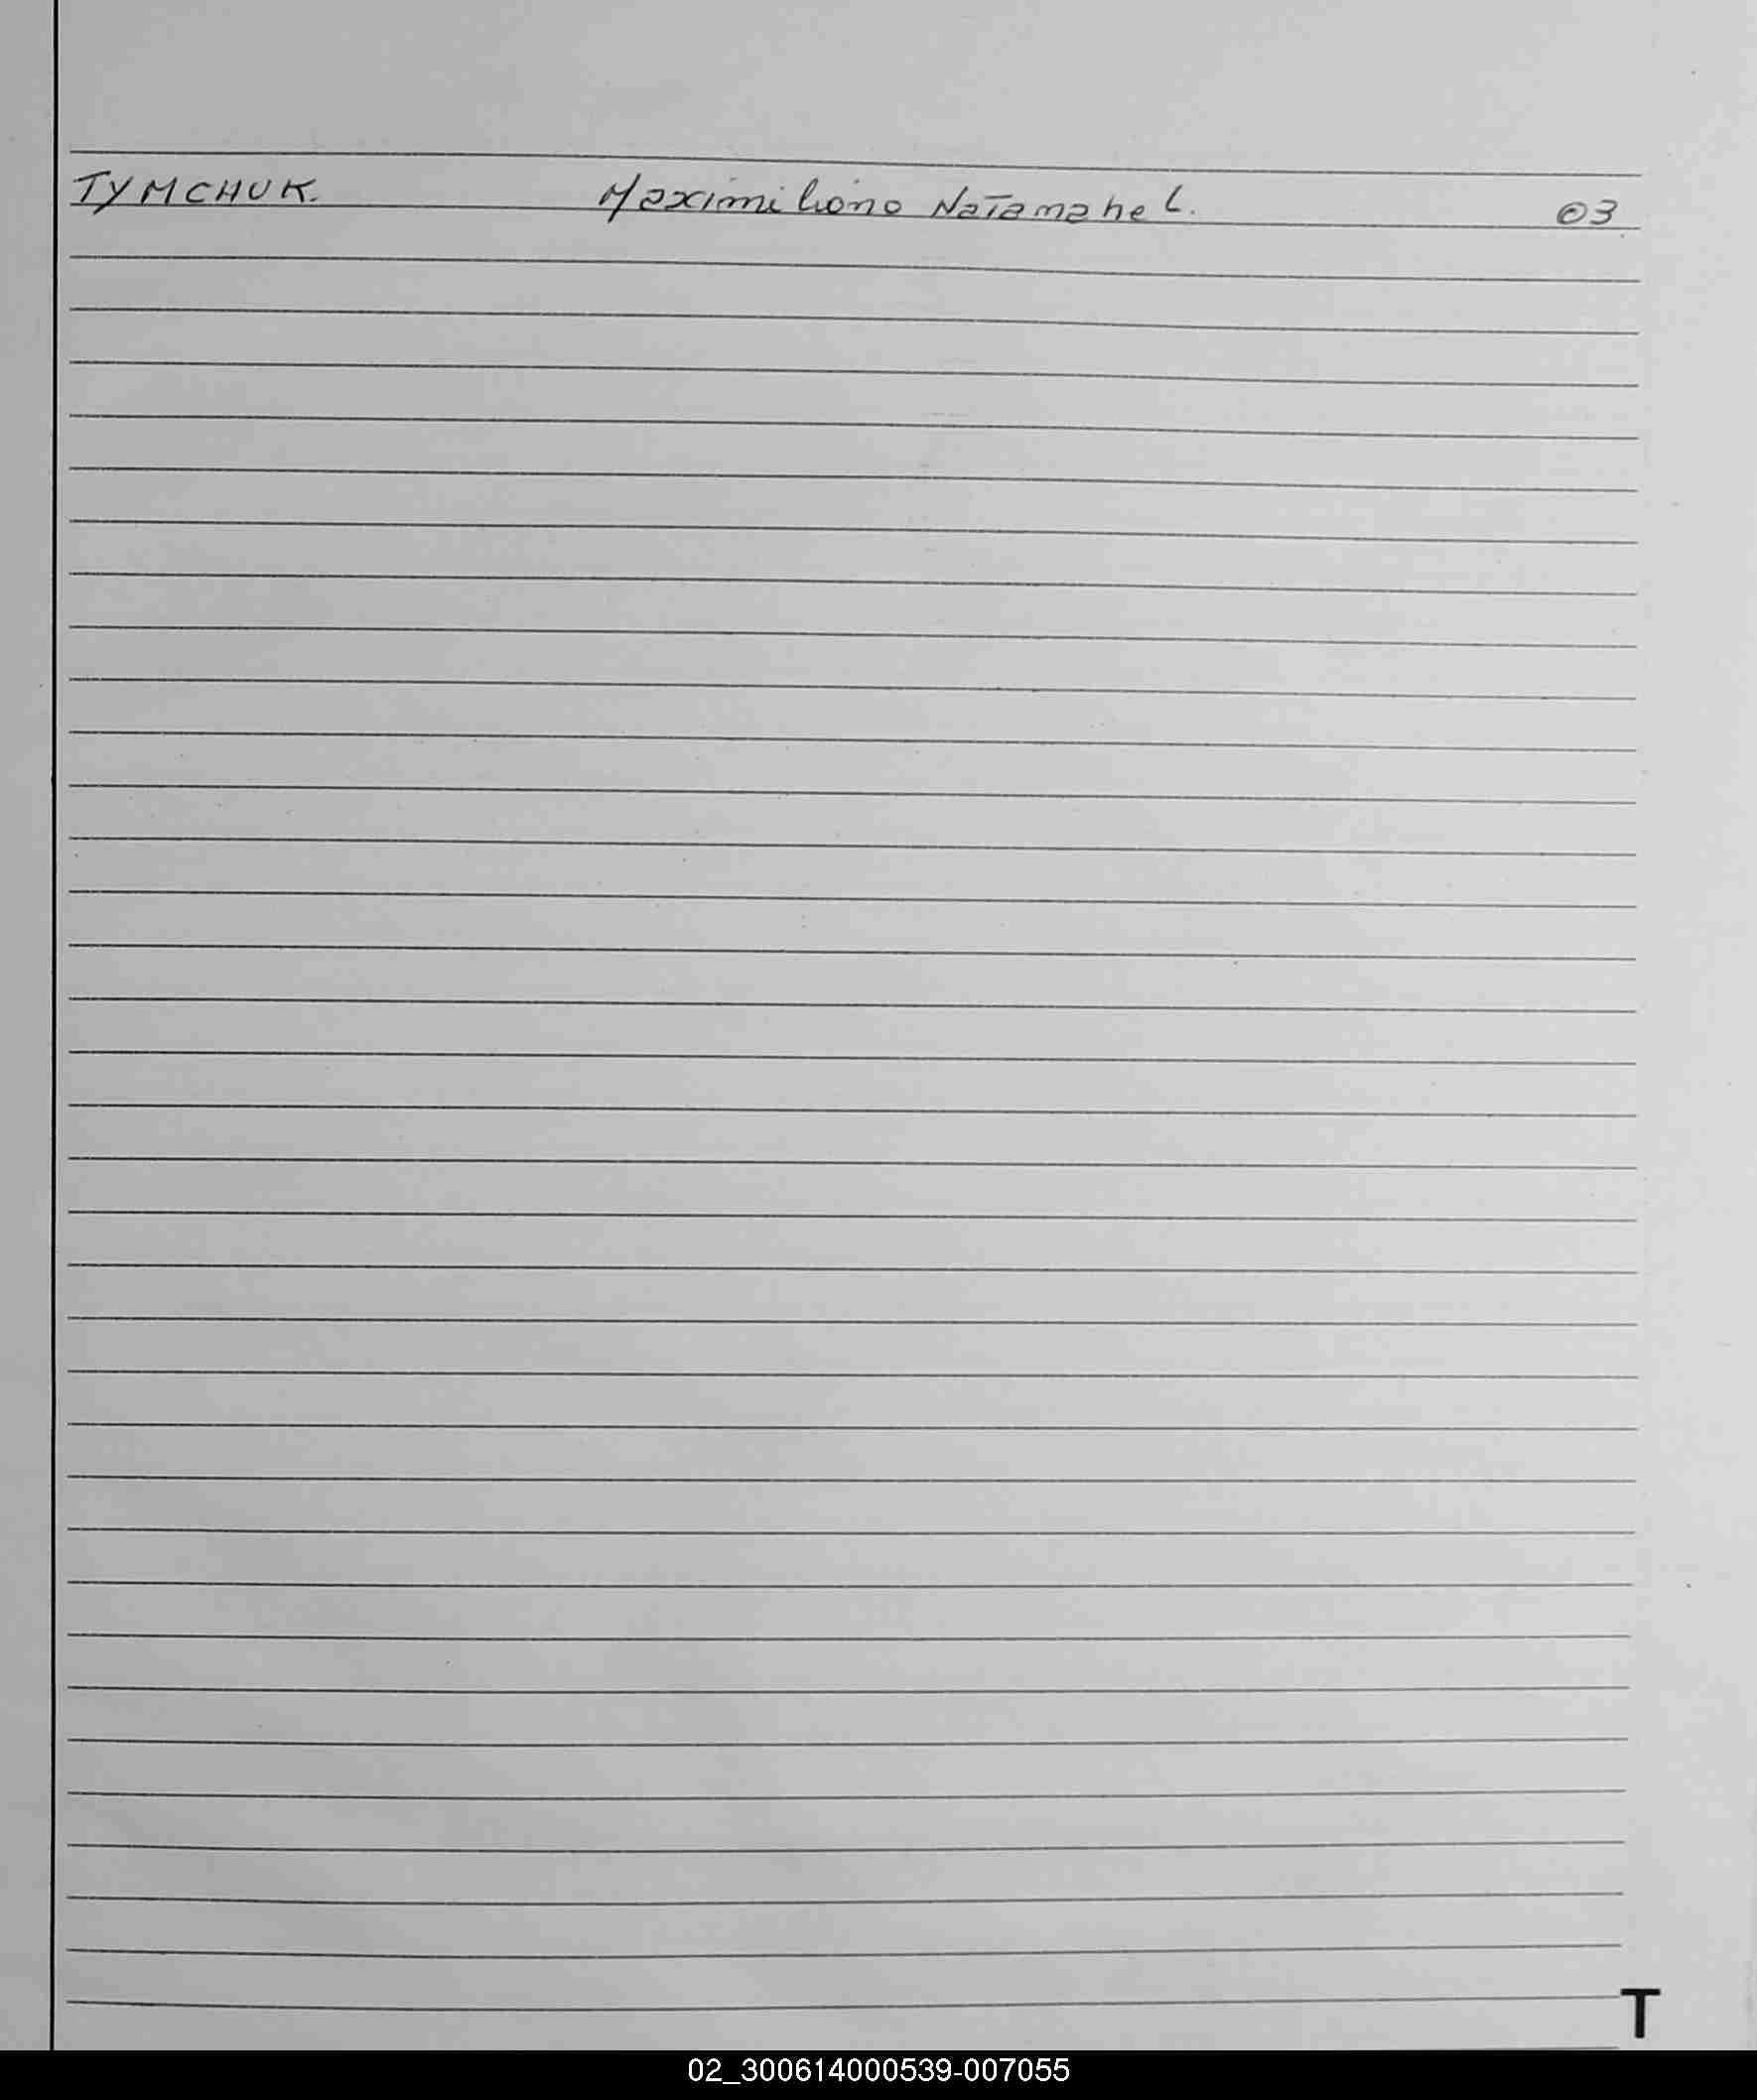 TYMCHUK. Maximiliano Natamahel. 03
T
02_300614000539-007055